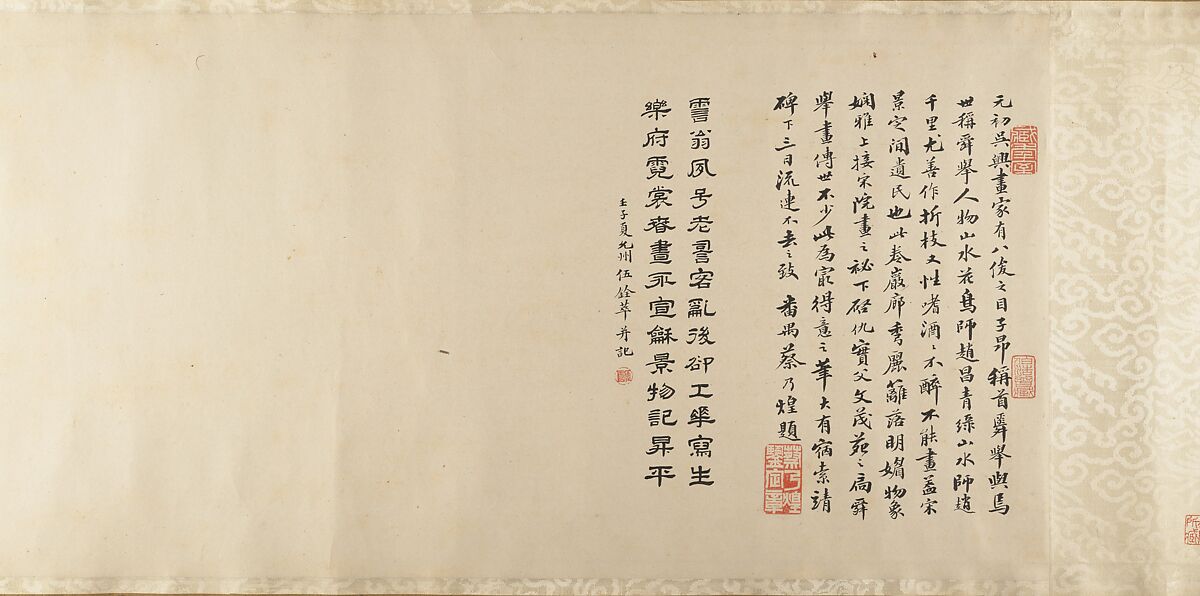 元初吳興畫家有八俊之目子昂稱首舜舉與焉
世稱舜舉人物山水花鳥師趙昌青綠山水師趙
千里尤善作折枝又性嗜酒酒不醉不能畫蓋宋
景定間遺民也此卷巖廊秀麗籬落明媚物象
嫻雅上接宋院畫之祕下啓仇實父文茂苑之扃舜
舉畫傳世不少此為最得意之筆大有宿索靖
碑下三日流連不去之致 番禺蔡乃煌題
蔡乃煌鑒定章
霅翁夙号老畫客亂後卻工華寫生
樂府霓裳春晝永宣龢景物記昇平
壬子夏允州伍銓萃并記